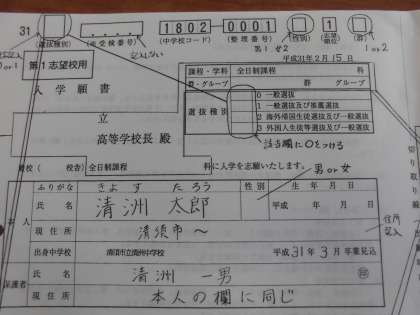 31
1802-0001
1
(選抜種別) (※受検番号) (中学校コード) (整理番号) (性別) 志望順位 (群)
記入しない 第1せ2 1or2
0or1
第1志望校用
平成31年2月15日
入学願書
課程・学科 全日制課程 科
群・グループ 群 グループ
選抜種別
0 一般選抜
1 一般選抜及び推薦選抜
2 海外帰国生徒選抜及び一般選抜
3 外国人生徒等選抜及び一般選抜
立
高等学校長 殿
該当欄に○をつける
貴校( 校舎) 全日制課程 科に入学を志願いたします。
男or女
ふりがな きよす たろう 性別 生年月日
本人
氏名 清洲 太郎 平成 年 月 日
現住所 清須市~
住所記入
出身中学校 清須市立清洲中学校 平成31年3月 卒業見込
保護者
氏名 清洲 一男 ㊞
現住所 本人の欄に同じ
切り取り線